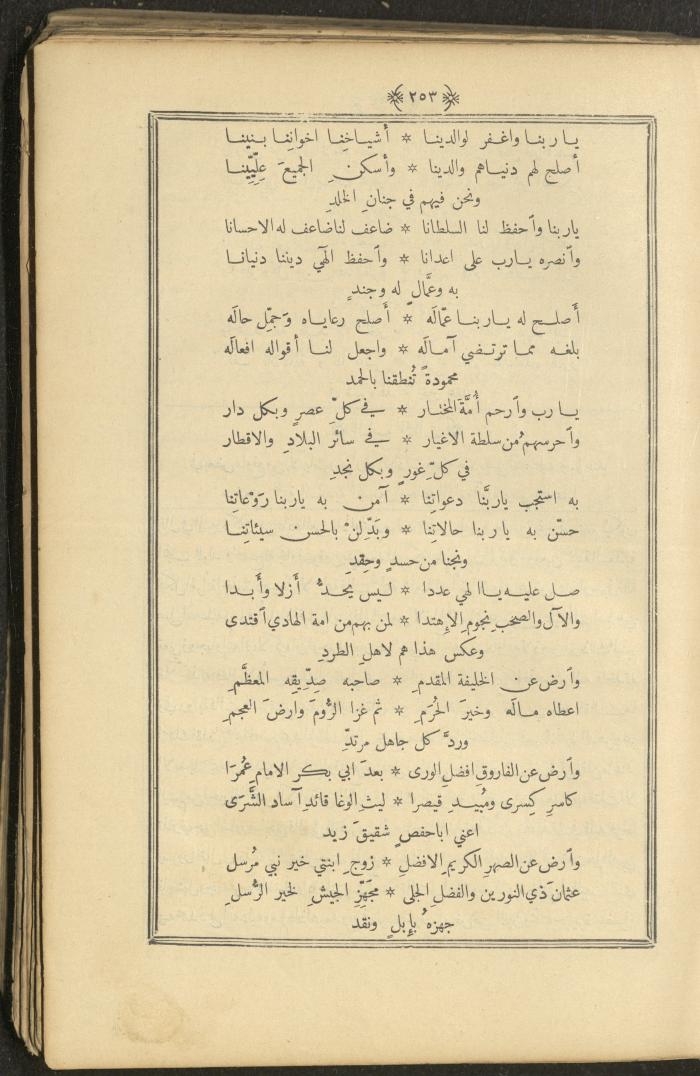 ﴿ ٢٥٣ ﴾
يا ربنا واغفر لوالدينا * أشياخِنا اخوانِنا بنينا
أصلح لهم دنياهم والدينا * وأسكنِ الجميعَ عِلِّيِّينا
ونحن فيهم في جنانِ الخلدِ
ياربنا وٱحفظ لنا السلطانا * ضاعف لنا ضاعف له الاحسانا
وٱنصره يارب على اعدانا * وٱحفظ الٓهي ديننا دنيانا
به وعمَّالٍ له وجندِ
أصلح له ياربنا عمّالَه * أصلح رعاياه وَجمِّل حالَه
بلغه مما ترتضي آمالَه * واجعل لنا أقواله افعالَه
محمودةً تُنطقنا بالحمد
يا رب وٱرحم أُمَّةَ المختار * في كلِّ عصرٍ وبكل دار
وٱحرسهمُ من سلطة الاغيار * في سائر البلادِ والاقطار
في كلّ غورٍ وبكل نجدِ
به استجب ياربَّنا دعواتِنا * آمن به ياربنا رَوْعاتِنا
حسّن به ياربنا حالاتنا * وبَدِّلَنْ بالحسن سيئاتِنا
ونجنا من حسدٍ وحِقدِ
صل عليه ياالهي عددا * ليس يحدُّ أزلا وأبدا
والآل والصحبِ نجومِ الإهتدا * لمن بهم من امة الهادي ٱقتدى
وعكس هذا هم لاهلِ الطردِ
وٱرض عن الخليفة المقدمِ * صاحبه صِدِّيقِه المعظَّمِ
اعطاه مالَه وخيرَ الحُرَمِ * ثم غزا الرُّومَ وارضَ العجمِ
وردَّ كل جاهل مرتدِّ
وٱرض عن الفاروق افضل الورى * بعدَ ابي بكر الامامِ عُمرَا
كاسرِ كِسرى ومُبيدِ قيصرا * ليثِ الوغا قائدِ آساد الشَّرَى
اعني اباحفصٍ شقيقَ زيد
وٱرض عن الصهرِ الكريمِ الافضلِ * زوجِ ابنتي خير نبي مُرسل
عثمانَ ذي النورين والفضل الجلى * مجَهِّزِ الجيشِ لخير الرُّسل
جهزهُ بإِبلٍ ونقد